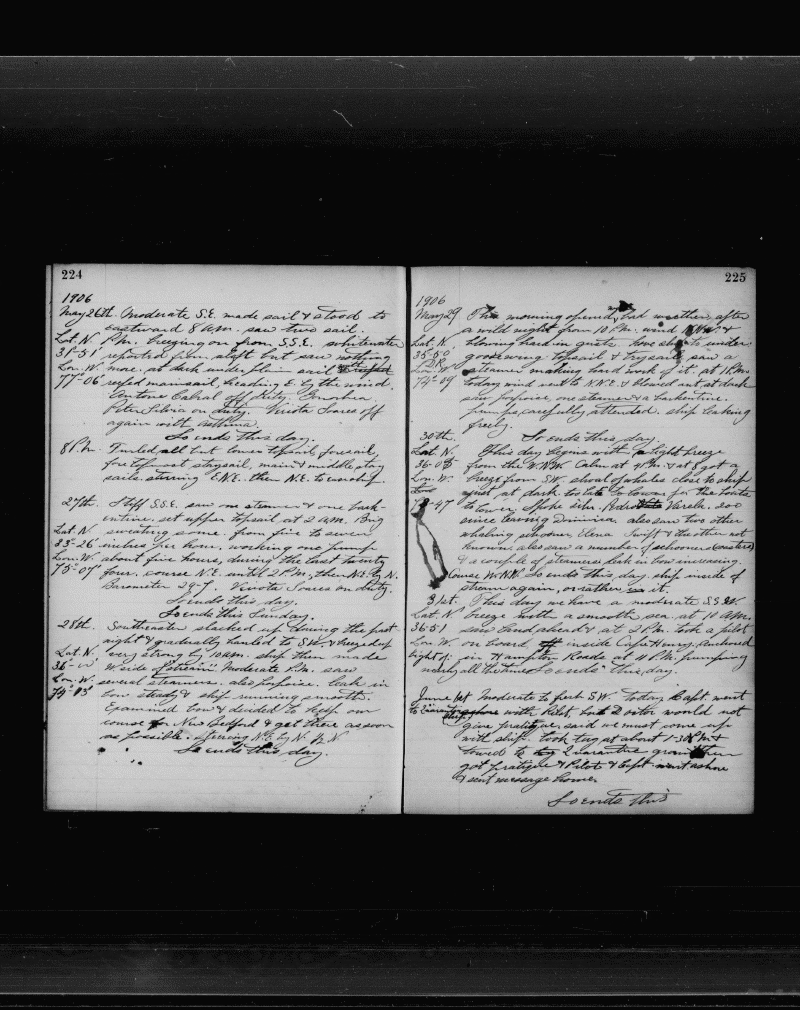 224
1906
May 26th. Moderate S.E. made sail & stood to
eastward 8 A.M. saw two sail.
Lat. N. P.M. breezing on from S.S.E. whitewater
31-51 reported from aloft but saw nothing
Lon. W. more. at dark under plain sail
77-06 reefed mainsail, heading E. by the wind.
Antone Cabral off duty.
Peter Silvia on duty. Soares off
again with asthma.
So ends this day.
8 P.M. Furled all but lower topsail, foresail,
fore topmast staysail, main & middle stay
sails. steering E.N.E. then N.E.
27th. Stiff S.S.E. saw one steamer & one bark-
entine. set upper topsail at 2 A.M. Brig
Lat. N. sweating some. from five to seven
33-26 inches per hour. working one pump
Lon. W. about five hours, during the last twenty
75-07 four. course N.E. until 2 P.M. then N.E. by N.
Barometer 29-7. Soares on duty.
So ends this day.
So ends this Sunday.
28th. Southeaster slacked up during the past
night & gradually hauled to S.W. & breezed up
Lat. N. very strong by 10 A.M. ship then made
36- Moderate P.M. saw
Lon. W. several steamers. also porpoise. leak in
74- bow steady & ship running smooth.
Examined bow & decided to keep our
course for New Bedford & get there as soon
as possible. steering N.E. by N.
So ends this day.
225
1906
May 29 This morning opened, bad weather after
a wild night from 10 P.M. wind &
Lat. N. blowing hard in gusts. hove ship to under
35-50 goosewing topsail & trysail. saw a
D.R.
Lon. W. steamer making hard work of it. at 1 P.M.
74-09 today wind went to N.N.E. & blowed out, at dark
saw porpoise, one steamer & a barkentine.
pumps, carefully attended. ship leaking
freely.
30th. So ends this day.
Lat. N. This day begins with a light breeze
36-05 from the W.N.W. Calm at 4 P.M. & at 8 got a
Lon. W. breeze from S.W. shoal of whales close to ship
just at dark too late to lower for the boats
-47 to lower. Spoke schr. Pedro Varela. 200
since leaving Dominica also saw two other
whaling schooner, Elena Swift & the other not
known. also saw a number of schooners (coasters)
& a couple of steamers. leak in bow increasing.
Course W.N.W. So ends this day, ship inside of
stream again, or rather in it.
31st. This day we have a moderate S.S.W.
Lat. N. breeze with a smooth sea. at 10 A.M.
36-51 saw land ahead & at 2 P.M. took a pilot
Lon. W. on board, off inside Cape Henry. Anchored
Light Ship. in Hampton Roads at 11 P.M. pumping
nearly all the time. So ends this day.
June 1st Moderate to fresh S.W. Today Capt. went
with Pilot, but Doctor would not
give pratique, said we must come up
with ship. took tug at about 1-30 P.M. &
towed to Quarantine ground then
got pratique & Pilot & Capt. went ashore
& sent message home.
So ends this